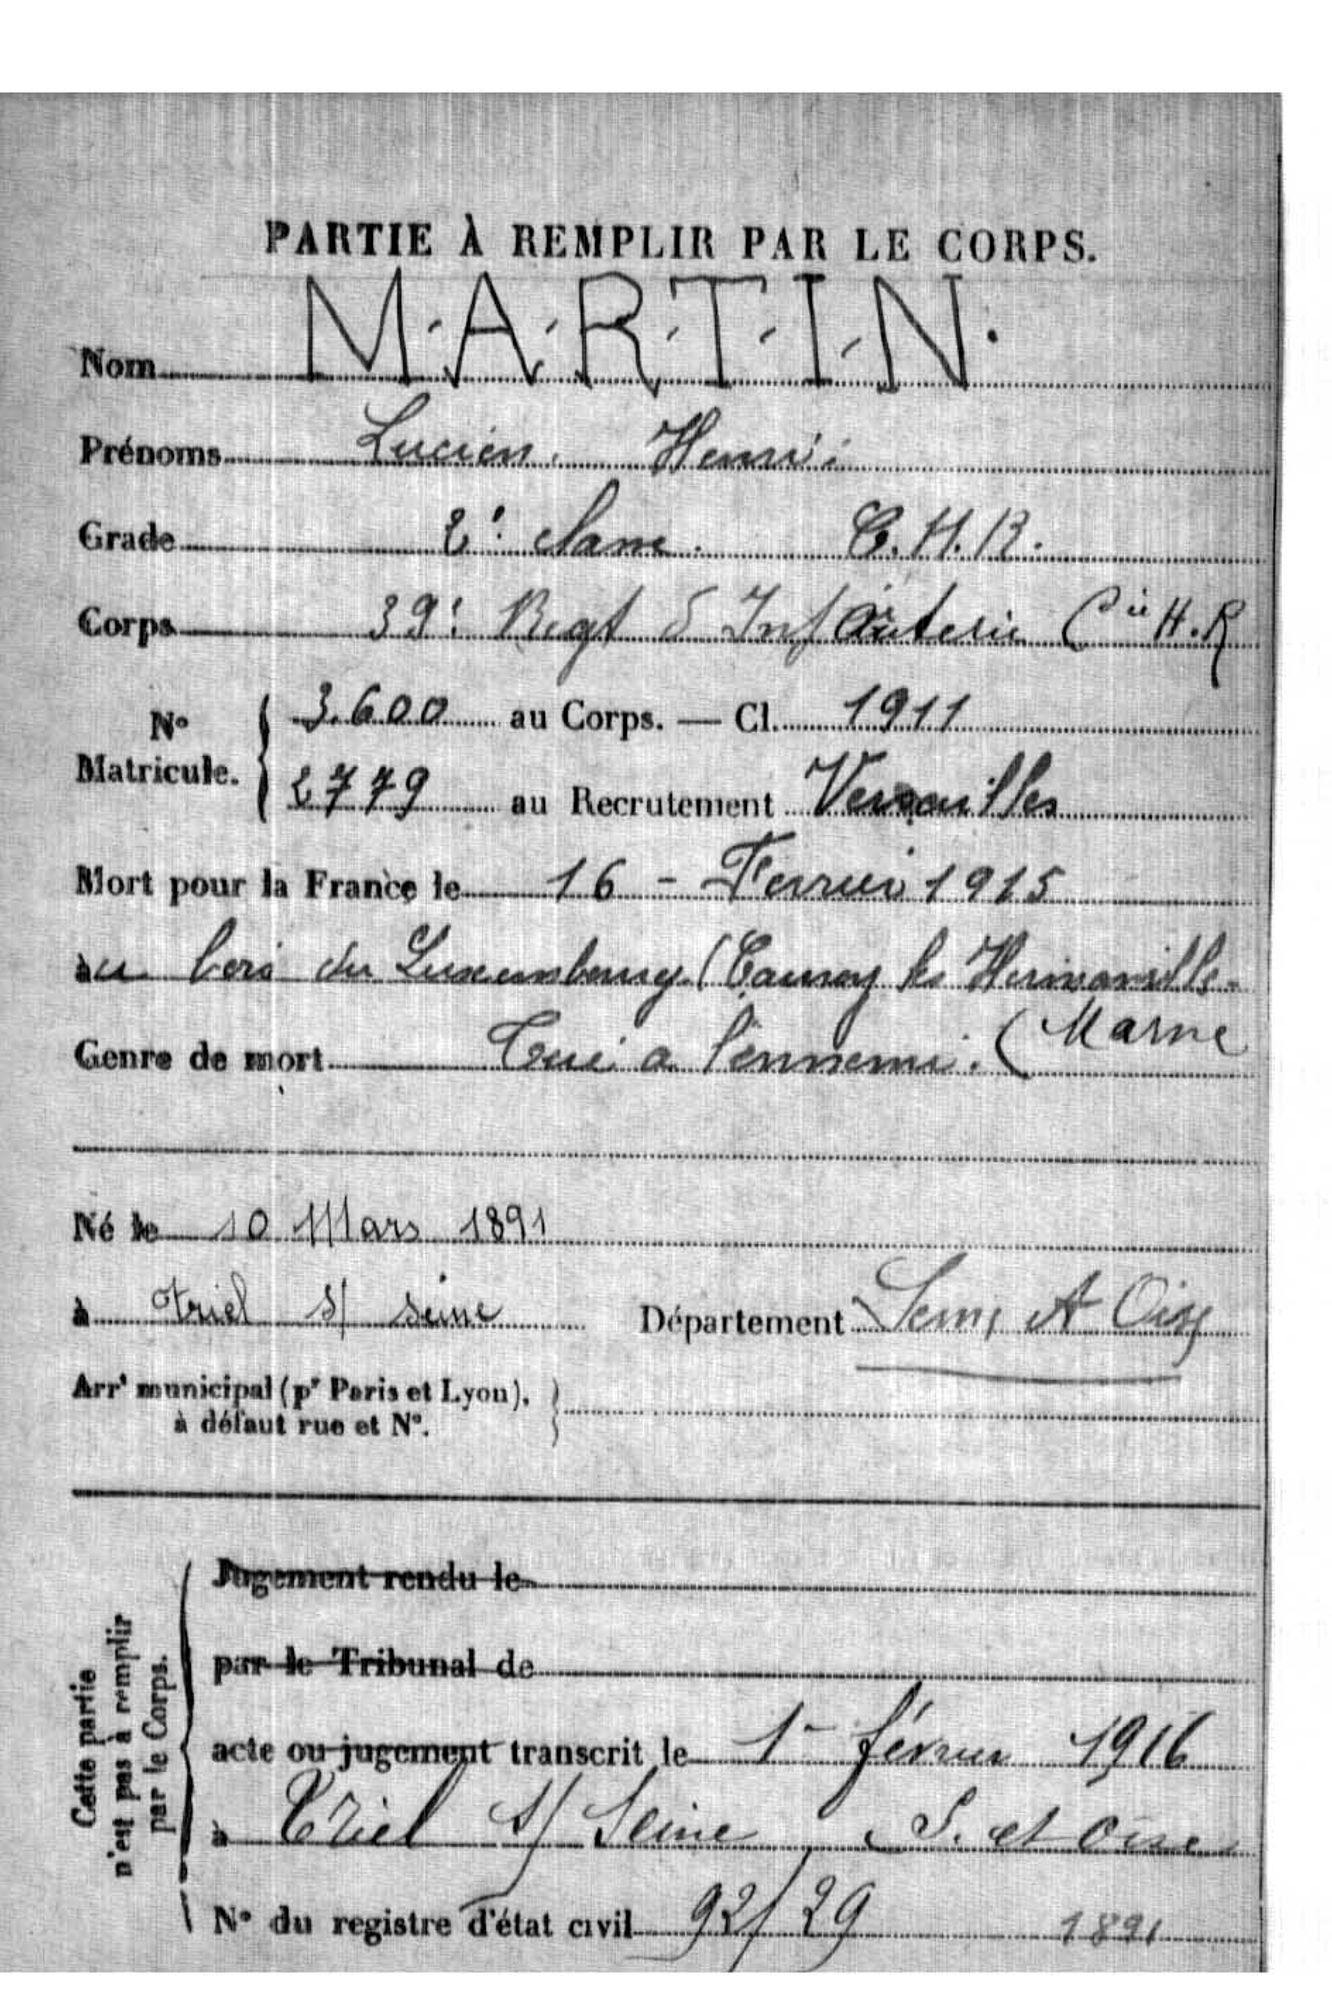 PARTIE À REMPLIR PAR LE CORPS.
Nom M.A.R.T.I.N.
Prénoms Lucien. Henri
Grade 2e classe. C.H.R.
Corps 39e Regt d'Infanterie Cie H.R
No Matricule. 3.600 au Corps. — Cl. 1911
2779 au Recrutement Versailles
Mort pour la France le 16 - Fevrier 1915
au bois du Luxembourg (Cauroy les Hermonville-
(Marne
Genre de mort Tué a l'ennemi.
Né le 10 Mars 1891
à triel s/ seine Département Seine et Oise
Arrt municipal (pr Paris et Lyon),
à défaut rue et No.
Cette partie
n'est pas à remplir
par le Corps.
Jugement rendu le
par le Tribunal de
acte ou jugement transcrit le 1er février 1916
à Triel s/ Seine S. et Oise
No du registre d'état civil 92/29 1891